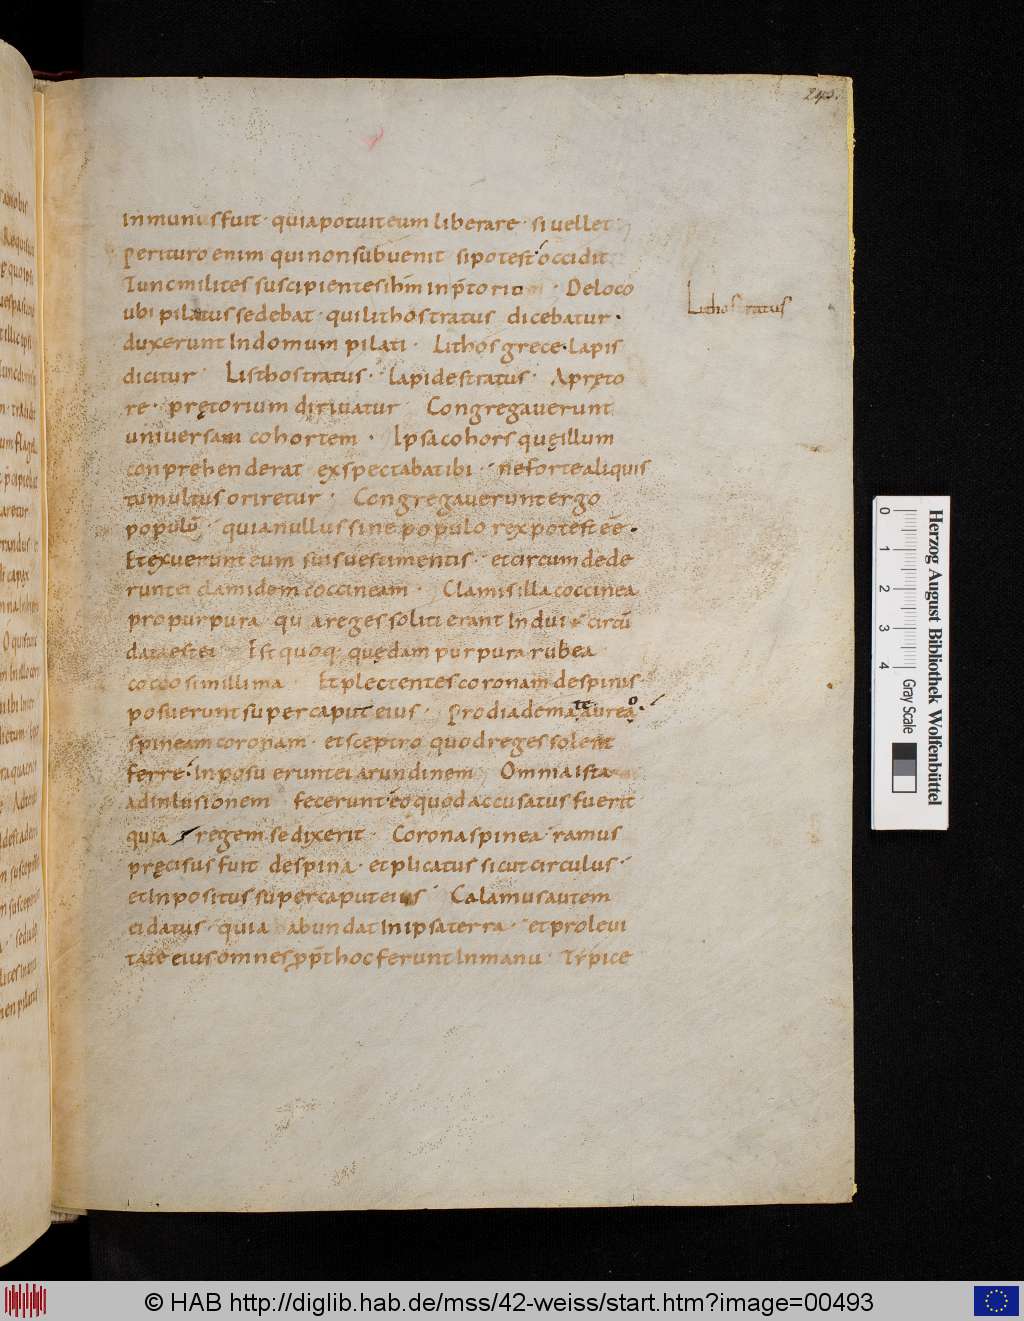 243.
inmunus fuit · quia potuit eum liberare · si vellet
perituro enim qui non subuenit si potest occidit
Tunc milites suscipientes ihm in p̄torio · De loco
ubi pilatus sedebat · qui lithostratus dicebatur ·
Lithostratus
duxerunt In domum pilati · Lithos grece · lapis
dicitur Listhostratus · lapide stratus · A pręto
re · prętorium diriuatur Congregauerunt
uniuersam cohortem · Ipsa cohors quę illum
conprehenderat exspectabat ibi · ne forte aliquis
tumultus oriretur · Congregauerunt ergo
populū quia nullus sine populo rex potest ēe ·
Et exuerunt eum suis uestimentis · et circumdede
runt ei clamidem coccineam · Clamis illa coccinea
pro purpura qu a reges soliti erant Indui circū
data est ei Est quoq; quędam purpura rubea
cocco simillima Et plectentes coronam de spinis
posuerunt super caput eius · Pro diademate aureo
spineam coronam · et sceptro quod reges solent
ferre · Inposuerunt ei arundinem Omnia ista
ad inlusionem fecerunt eo quod accusatus fuerit
quia regem se dixerit · Corona spinea · ramus
pręcisus fuit de spina · et plicatus sicut circulus ·
et Inpositus super caput eius Calamus autem
cidatus · quia abundat In ipsa terra · et pro leui
tate eius omnes pp̄t hoc ferunt In manu · Tipice
Herzog August Bibliothek Wolfenbüttel
0 1 2 3 4
Gray Scale
© HAB http://diglib.hab.de/mss/42-weiss/start.htm?image=00493